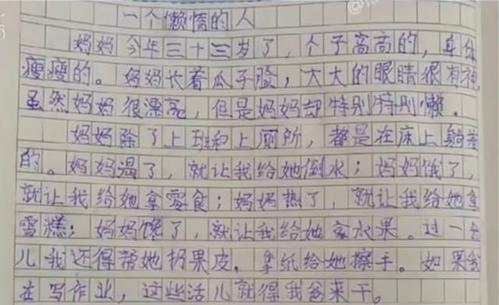 一个懒惰的人
妈妈今年三十三岁了，个子高高的，身体
瘦瘦的。妈妈长着瓜子脸，大大的眼睛很有神，
虽然妈妈很漂亮，但是妈妈却特别特别懒。
妈妈除了上班和上厕所，都是在床上躺着
的。妈妈渴了，就让我给她倒水；妈妈饿了，
就让我给她拿零食；妈妈热了，就让我给她拿
雪糕；妈妈馋了，就让我给她拿水果。过一会
儿我还得帮她扔果皮。拿纸给她擦手。如果我
在写作业，这些活儿就得我爸来干。